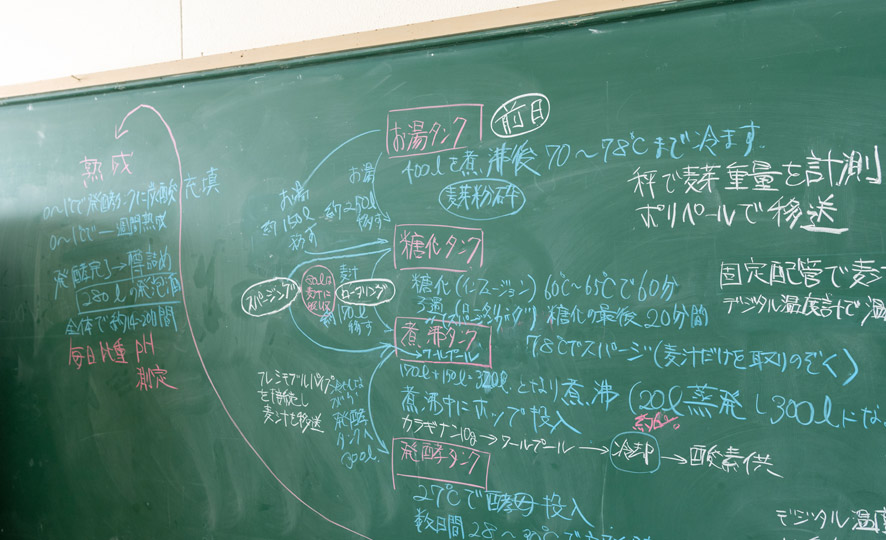 熟成
充填
0〜1℃で発酵タンクに
0〜1℃で一週間熟成
280lの発泡酒
全体で約14-20日間
毎日比重 pH
測定
お湯タンク
前日
400lを煮沸後 70〜78℃まで冷ます
麦芽粉砕
お湯
約150l
移す
お湯
約250l
移す
秤で麦芽重量を計測
ポリペールで移送
糖化タンク
スパージング
麦汁
移す
糖化(インフュージョン) 60℃〜65℃で60分
糖化の最後20分間
固定配管で麦
デジタル温度計で温
煮沸タンク
ワールプール
78℃でスパージ(麦汁だけを取りのぞく)
となり煮沸(20l蒸発し300lにな
煮沸中にホップ投入
カラギナン10g→ワールプール→冷却→酸素供
フレキシブルパイプ
を接続し
麦汁を移送
発酵
タンクへ
300l
発酵タンク
27℃で酵母投入
数日間28〜30℃で
デジタル温度